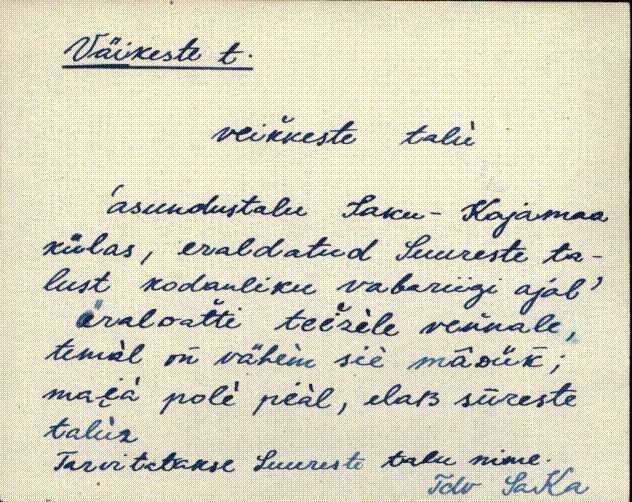 Väikeste t.
veik̆keste talù
'asundustalu Saku - Kajamaa
külas, eraldatud Suureste ta-
lust kodanliku vabariigi ajal'
èraloat̆ti teĭzèle vennale,
temàl oñ vähèm siè mâDük̆;
maià polè pèàl, elaB sūreste
talùz
Tarvitatakse Suureste talu nime.
Tdv SaKa